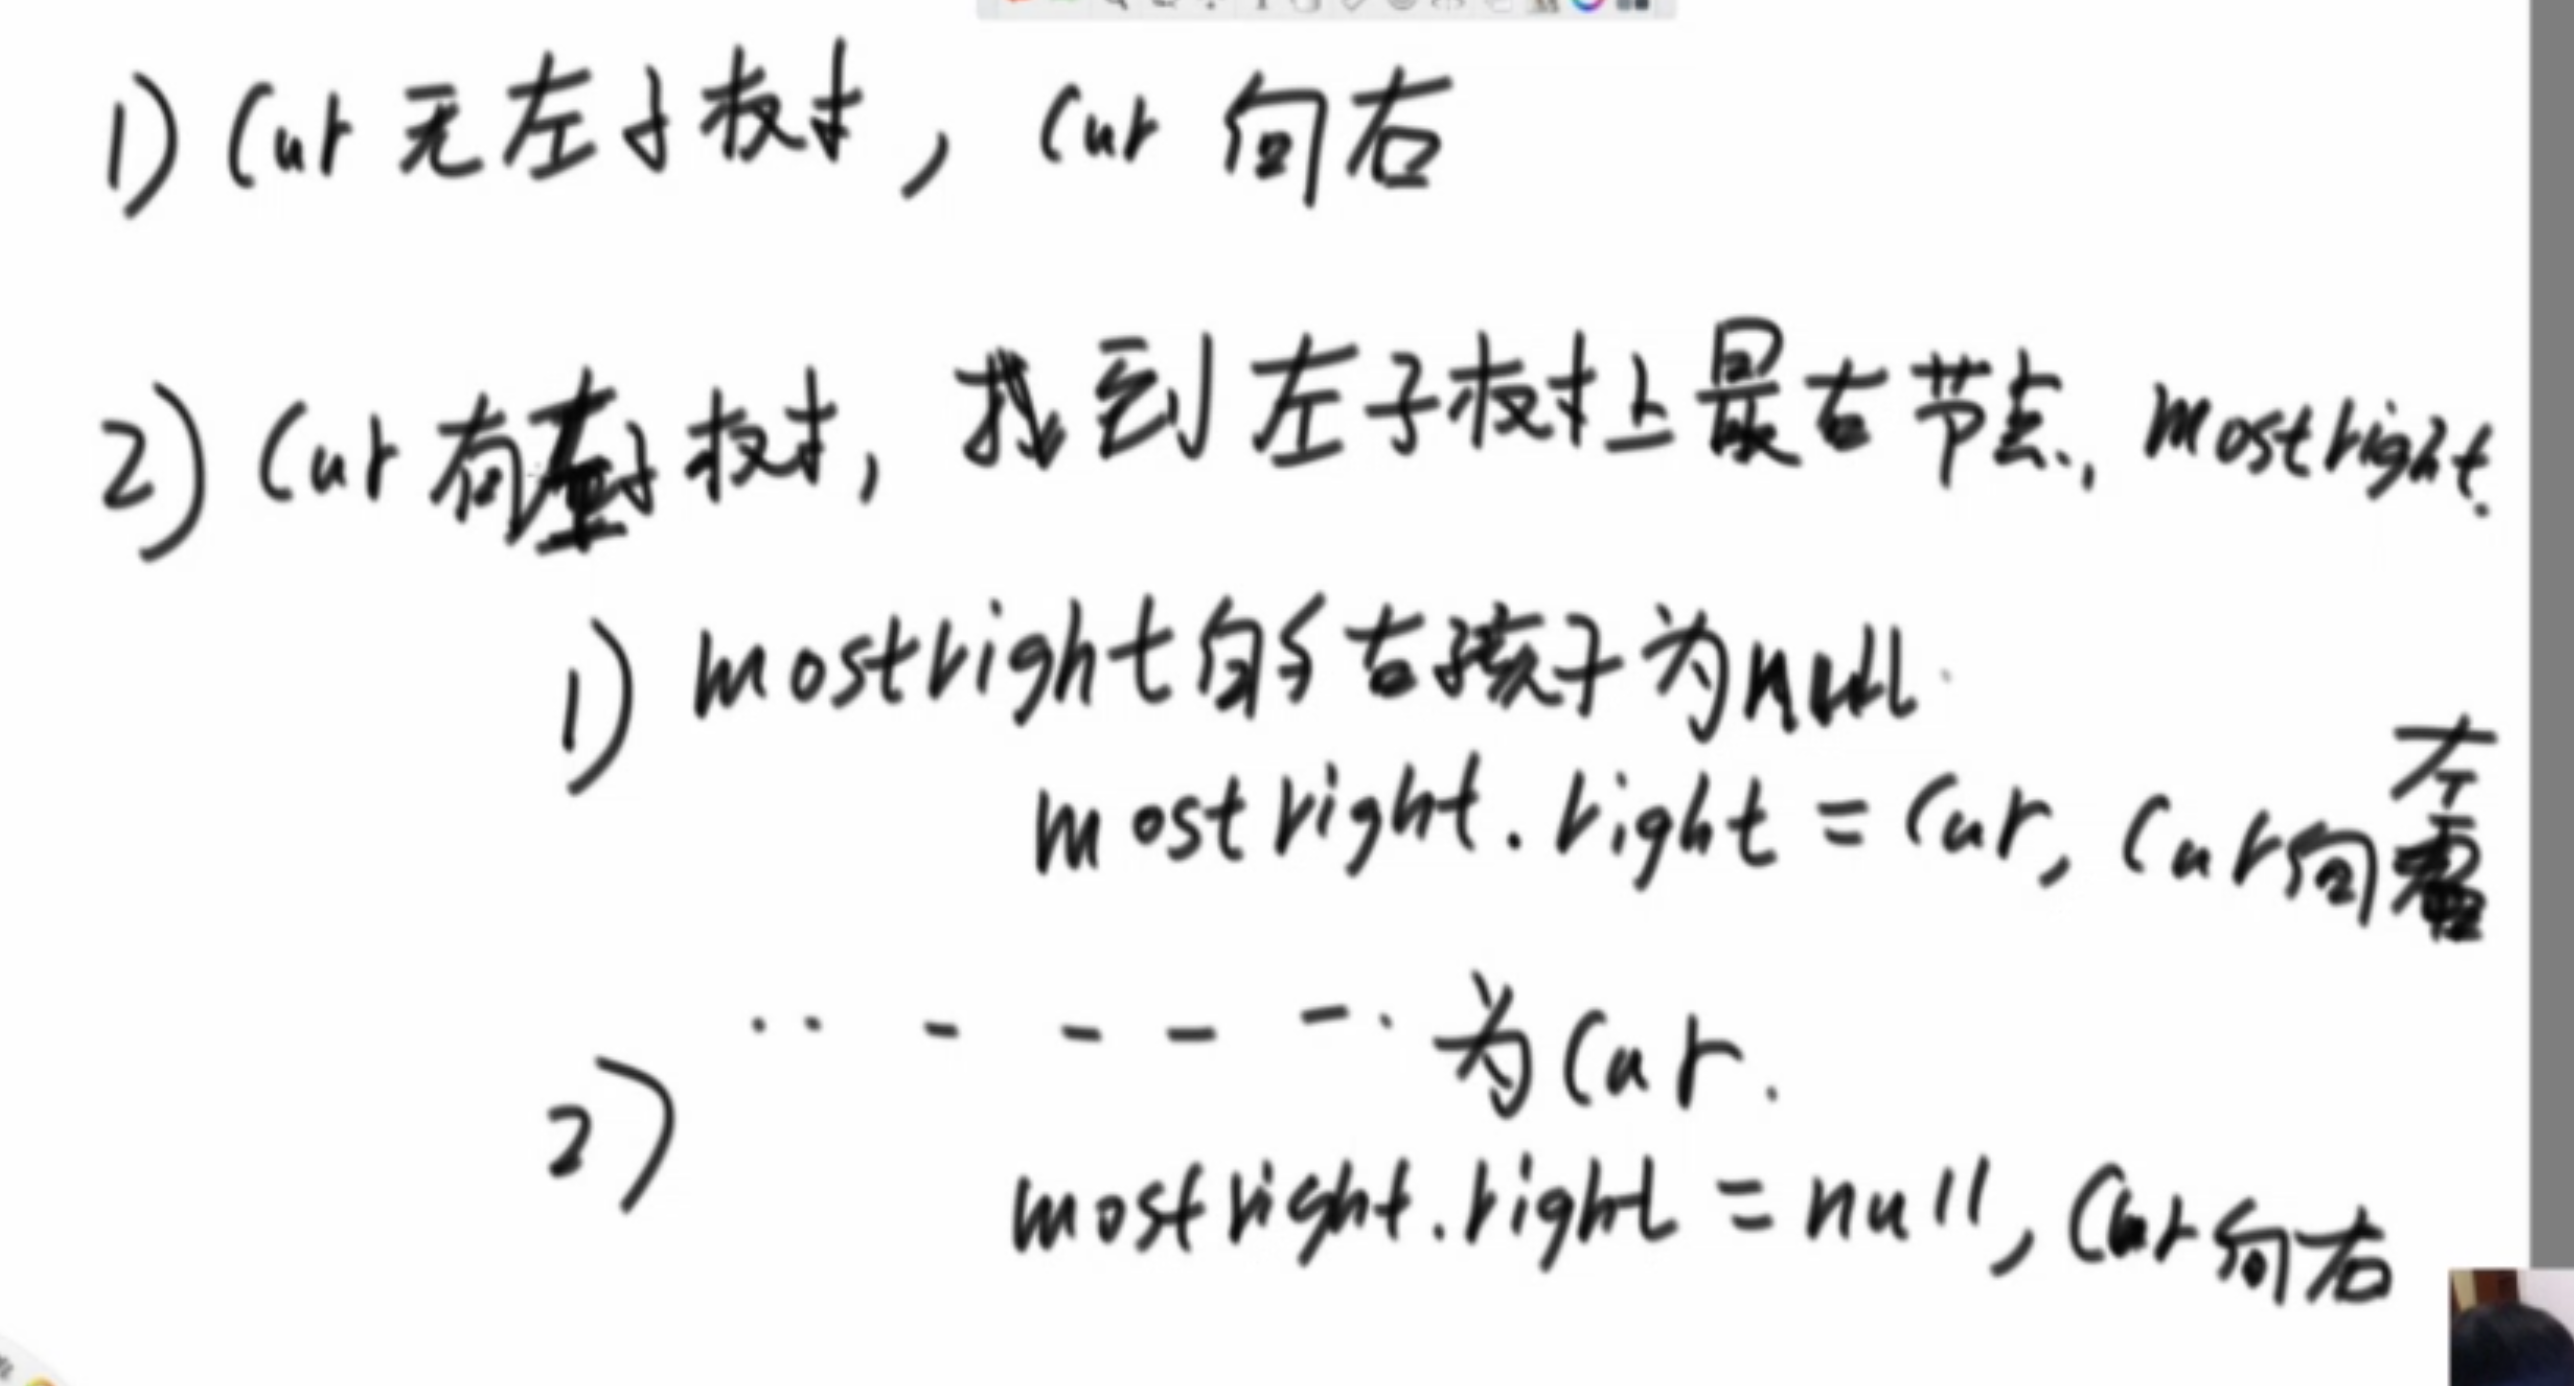 1) Cur 无左子树, Cur 向右
2) Cur 有左子树, 找到左子树上最右节点, mostright.
1) mostright的右孩子为null.
mostright.right = Cur, Cur向左
2) .. - - - - . 为Cur.
mostright.right = null, Cur向右